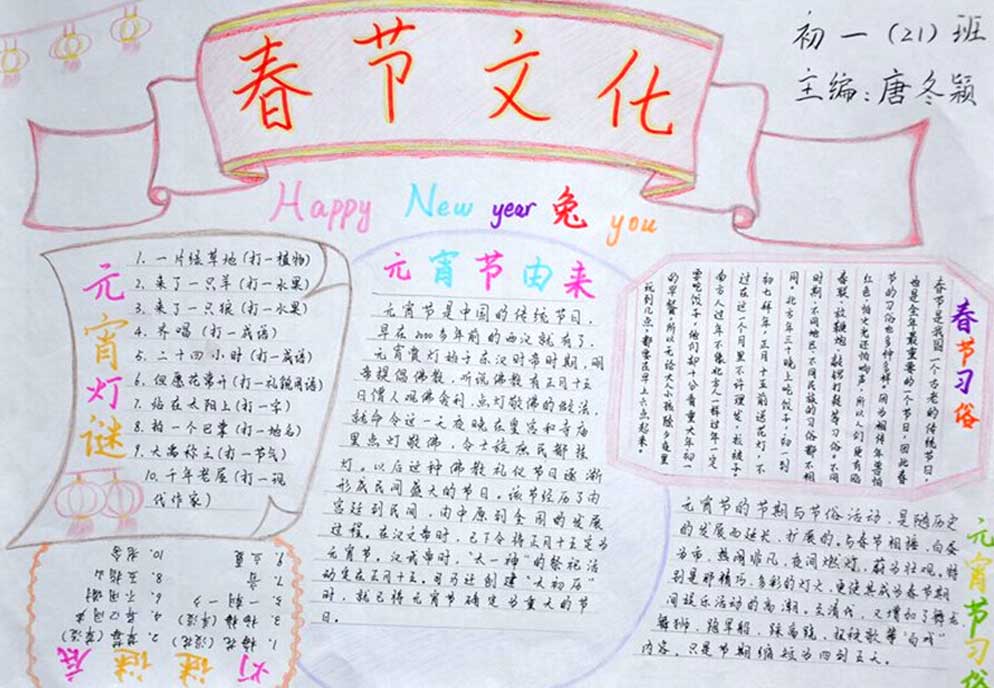 春节文化
初一（21）班
主编：唐冬颖
Happy New year 兔 you
元宵灯谜
1. 一片绿草地（打一植物）
2. 来了一只羊（打一水果）
3. 来了一只狼（打一水果）
4. 齐唱（打一成语）
5. 二十四小时（打一成语）
6. 但愿花常开（打一礼貌用语）
7. 站在太阳上（打一字）
8. 拍一个巴掌（打一地名）
9. 大禹称王（打一节气）
10. 千年老屋（打一现
代作家）
灯谜谜底
1. 梅花（没花）
2. 草莓（草没）
3. 杨梅（羊没）
4. 异口同声
5. 一朝一夕
6. 不用谢
7. 音
8. 五指山
9. 立夏
10. 老舍
元宵节由来
元宵节是中国的传统节日，
早在2000多年前的西汉就有了，
元宵赏灯始于东汉明帝时期，明
帝提倡佛教，听说佛教有正月十五
日僧人观佛舍利，点灯敬佛的做法，
就命令这一天夜晚在皇宫和寺庙
里点灯敬佛，令士族庶民都挂
灯。以后这种佛教礼仪节日逐渐
形成民间盛大的节日。该节经历了由
宫廷到民间，由中原到全国的发展
过程。在汉文帝时，已下令将正月十五定为
元宵节。汉武帝时，“太一神”的祭祀活
动定在正月十五。司马迁创建“太初历”
时，就已将元宵节确定为重大的节
日。
春节习俗
春节是我国一个古老的传统节日，
也是全年最重要的一个节日，因此春
节的习俗也多种多样，因为相传年兽怕
红色，怕火光还怕响声，所以人们便有贴
春联、放鞭炮、敲锣打鼓等习俗。不同
时期、不同地区、不同民族的习俗都不相
同，北方年三十晚上吃饺子，初一到
初七拜年，正月十五前送花灯，不
过在这一个月里不许理发，拉被子。
南方人过年不像北方人一样过年一定
要吃饺子，他们却十分看重大年初一
的早餐，所以无论大人小孩除夕夜里
玩到几点，都要在早上六点起来。
元宵节习俗
元宵节的节期与节俗活动，是随历史
的发展而延长、扩展的，与春节相接，白昼
为市，热闹非凡，夜间燃灯，蔚为壮观。特
别是那精巧、多彩的灯火，更使其成为春节期
间娱乐活动的高潮。至清代，又增加了舞龙、
舞狮、跑旱船、踩高跷、扭秧歌等“百戏”
内容，只是节期缩短为四到五天。